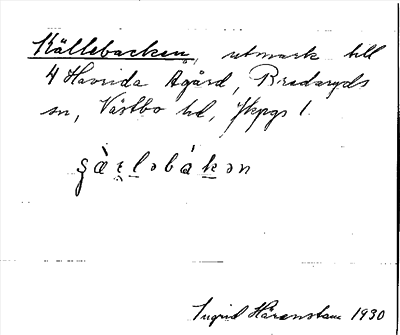 Källebacken, utmark till
4 Havrida Ågård, Bredaryds
sn, Västbo hd, Jkpgs l.
Ingrid Härenstam 1930